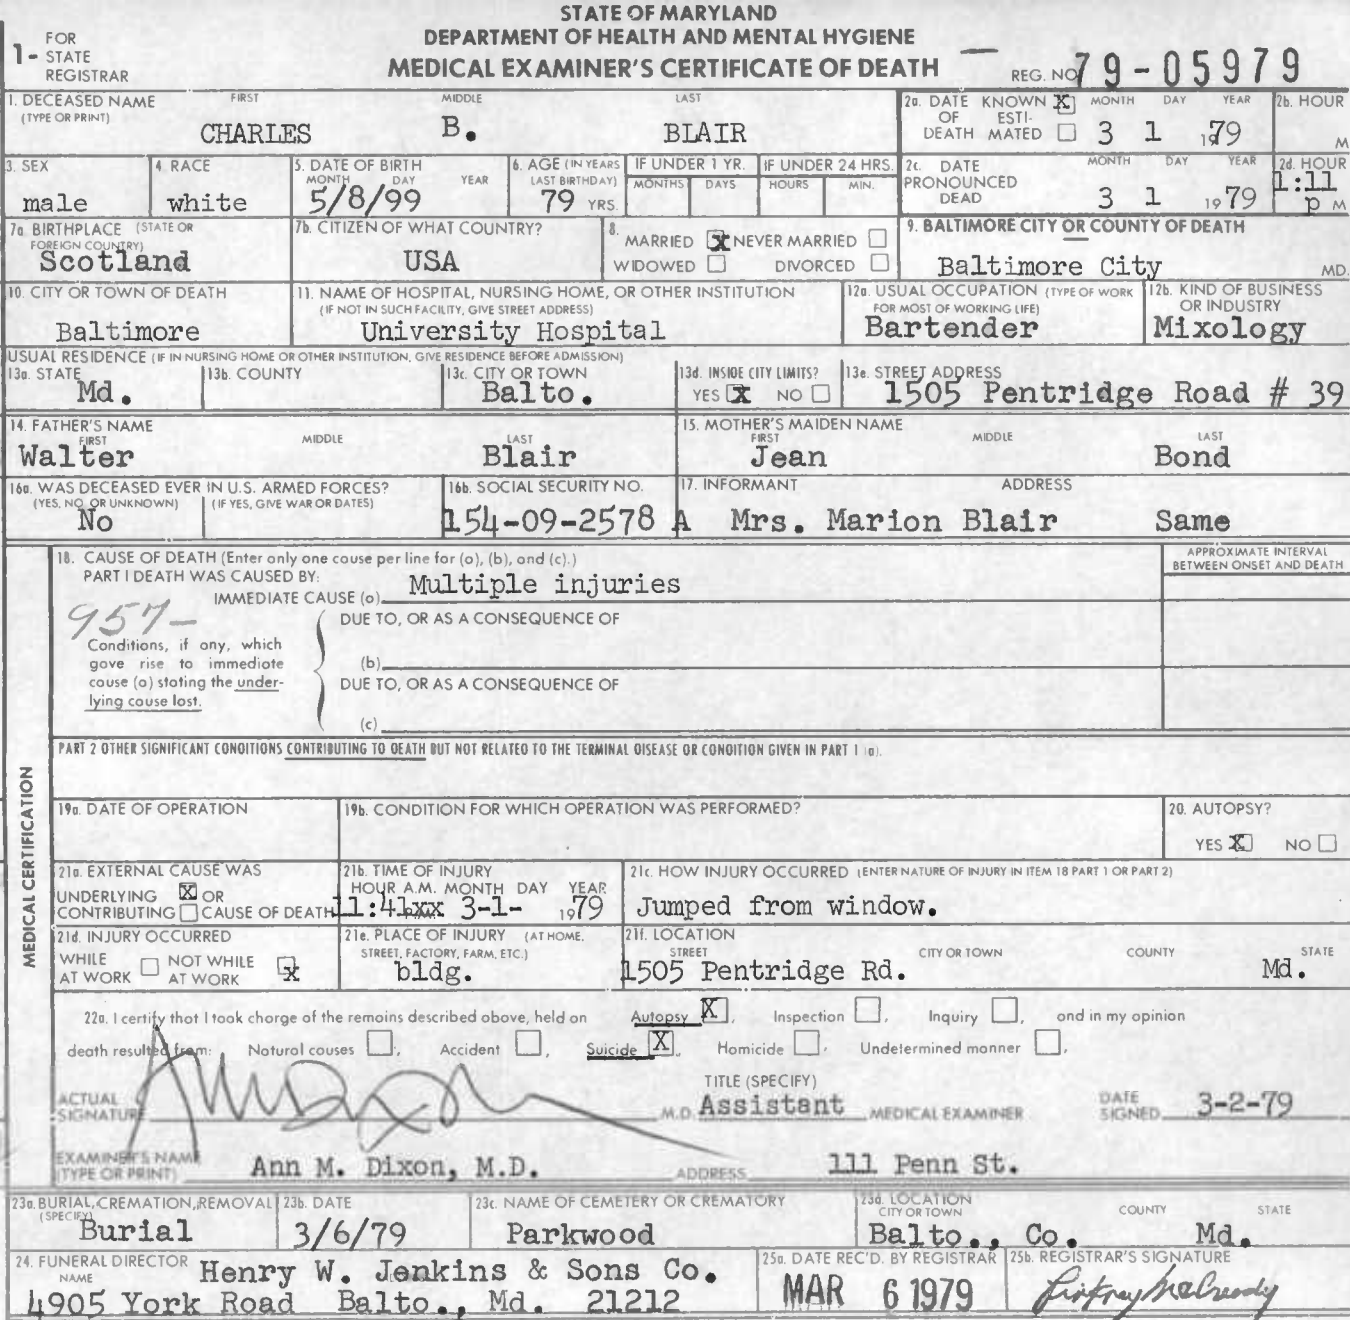 STATE OF MARYLAND
DEPARTMENT OF HEALTH AND MENTAL HYGIENE
MEDICAL EXAMINER'S CERTIFICATE OF DEATH
1- FOR STATE REGISTRAR
REG. NO. 79-05979
1. DECEASED NAME (TYPE OR PRINT) FIRST MIDDLE LAST
CHARLES B. BLAIR
2a. DATE OF DEATH KNOWN X ESTIMATED MONTH DAY YEAR 3 1 1979
2b. HOUR M
3. SEX male
4. RACE white
5. DATE OF BIRTH MONTH DAY YEAR 5/8/99
6. AGE (IN YEARS LAST BIRTHDAY) 79 YRS.
IF UNDER 1 YR. MONTHS DAYS
IF UNDER 24 HRS. HOURS MIN.
2c. DATE PRONOUNCED DEAD MONTH DAY YEAR 3 1 1979
2d. HOUR 1:11 p M
7a. BIRTHPLACE (STATE OR FOREIGN COUNTRY) Scotland
7b. CITIZEN OF WHAT COUNTRY? USA
8. MARRIED X NEVER MARRIED
WIDOWED DIVORCED
9. BALTIMORE CITY OR COUNTY OF DEATH
Baltimore City MD.
10. CITY OR TOWN OF DEATH Baltimore
11. NAME OF HOSPITAL, NURSING HOME, OR OTHER INSTITUTION
(IF NOT IN SUCH FACILITY, GIVE STREET ADDRESS)
University Hospital
12a. USUAL OCCUPATION (TYPE OF WORK FOR MOST OF WORKING LIFE) Bartender
12b. KIND OF BUSINESS OR INDUSTRY Mixology
USUAL RESIDENCE (IF IN NURSING HOME OR OTHER INSTITUTION, GIVE RESIDENCE BEFORE ADMISSION)
13a. STATE Md.
13b. COUNTY
13c. CITY OR TOWN Balto.
13d. INSIDE CITY LIMITS? YES X NO
13e. STREET ADDRESS 1505 Pentridge Road # 39
14. FATHER'S NAME FIRST MIDDLE LAST
Walter Blair
15. MOTHER'S MAIDEN NAME FIRST MIDDLE LAST
Jean Bond
16a. WAS DECEASED EVER IN U.S. ARMED FORCES?
(YES, NO, OR UNKNOWN) (IF YES, GIVE WAR OR DATES)
No
16b. SOCIAL SECURITY NO. 154-09-2578 A
17. INFORMANT ADDRESS
Mrs. Marion Blair Same
MEDICAL CERTIFICATION
18. CAUSE OF DEATH (Enter only one cause per line for (a), (b), and (c).)
PART I DEATH WAS CAUSED BY:
IMMEDIATE CAUSE (a) Multiple injuries
APPROXIMATE INTERVAL BETWEEN ONSET AND DEATH
957-
DUE TO, OR AS A CONSEQUENCE OF
Conditions, if any, which gave rise to immediate cause (a) stating the underlying cause last.
(b)
DUE TO, OR AS A CONSEQUENCE OF
(c)
PART 2 OTHER SIGNIFICANT CONDITIONS CONTRIBUTING TO DEATH BUT NOT RELATED TO THE TERMINAL DISEASE OR CONDITION GIVEN IN PART 1 (a).
19a. DATE OF OPERATION
19b. CONDITION FOR WHICH OPERATION WAS PERFORMED?
20. AUTOPSY? YES X NO
21a. EXTERNAL CAUSE WAS
UNDERLYING X OR
CONTRIBUTING CAUSE OF DEATH
21b. TIME OF INJURY
HOUR A.M. MONTH DAY YEAR
11:41xx 3-1- 1979
21c. HOW INJURY OCCURRED (ENTER NATURE OF INJURY IN ITEM 18 PART 1 OR PART 2)
Jumped from window.
21d. INJURY OCCURRED
WHILE AT WORK NOT WHILE AT WORK X
21e. PLACE OF INJURY (AT HOME, STREET, FACTORY, FARM, ETC.)
bldg.
21f. LOCATION
STREET CITY OR TOWN COUNTY STATE
1505 Pentridge Rd. Md.
22a. I certify that I took charge of the remains described above, held on Autopsy X, Inspection, Inquiry, and in my opinion
death resulted from: Natural causes, Accident, Suicide X, Homicide, Undetermined manner.
ACTUAL SIGNATURE M.D.
TITLE (SPECIFY) Assistant MEDICAL EXAMINER
DATE SIGNED 3-2-79
EXAMINER'S NAME (TYPE OR PRINT) Ann M. Dixon, M.D.
ADDRESS 111 Penn St.
23a. BURIAL, CREMATION, REMOVAL (SPECIFY) Burial
23b. DATE 3/6/79
23c. NAME OF CEMETERY OR CREMATORY Parkwood
23d. LOCATION CITY OR TOWN COUNTY STATE
Balto., Co. Md.
24. FUNERAL DIRECTOR NAME Henry W. Jenkins & Sons Co.
4905 York Road Balto., Md. 21212
25a. DATE REC'D. BY REGISTRAR MAR 6 1979
25b. REGISTRAR'S SIGNATURE